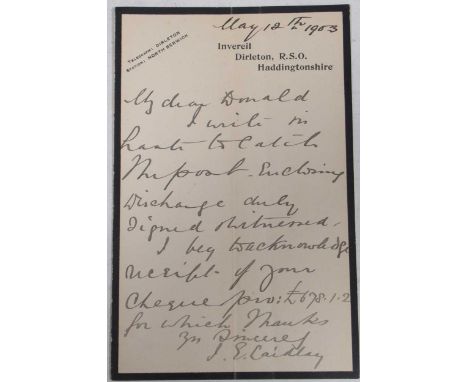 May 12th 1903
TELEGRAMS: DIRLETON
STATION: NORTH BERWICK
Invereil
Dirleton, R.S.O.
Haddingtonshire
My dear Donald
I write in
haste to catch
the post. Enclosing
Discharge duly
signed & witnessed.
I beg to acknowledge
receipt of your
cheque pro: £678.1.2
for which Thanks
Yrs Sincerely
J. E. Laidlay